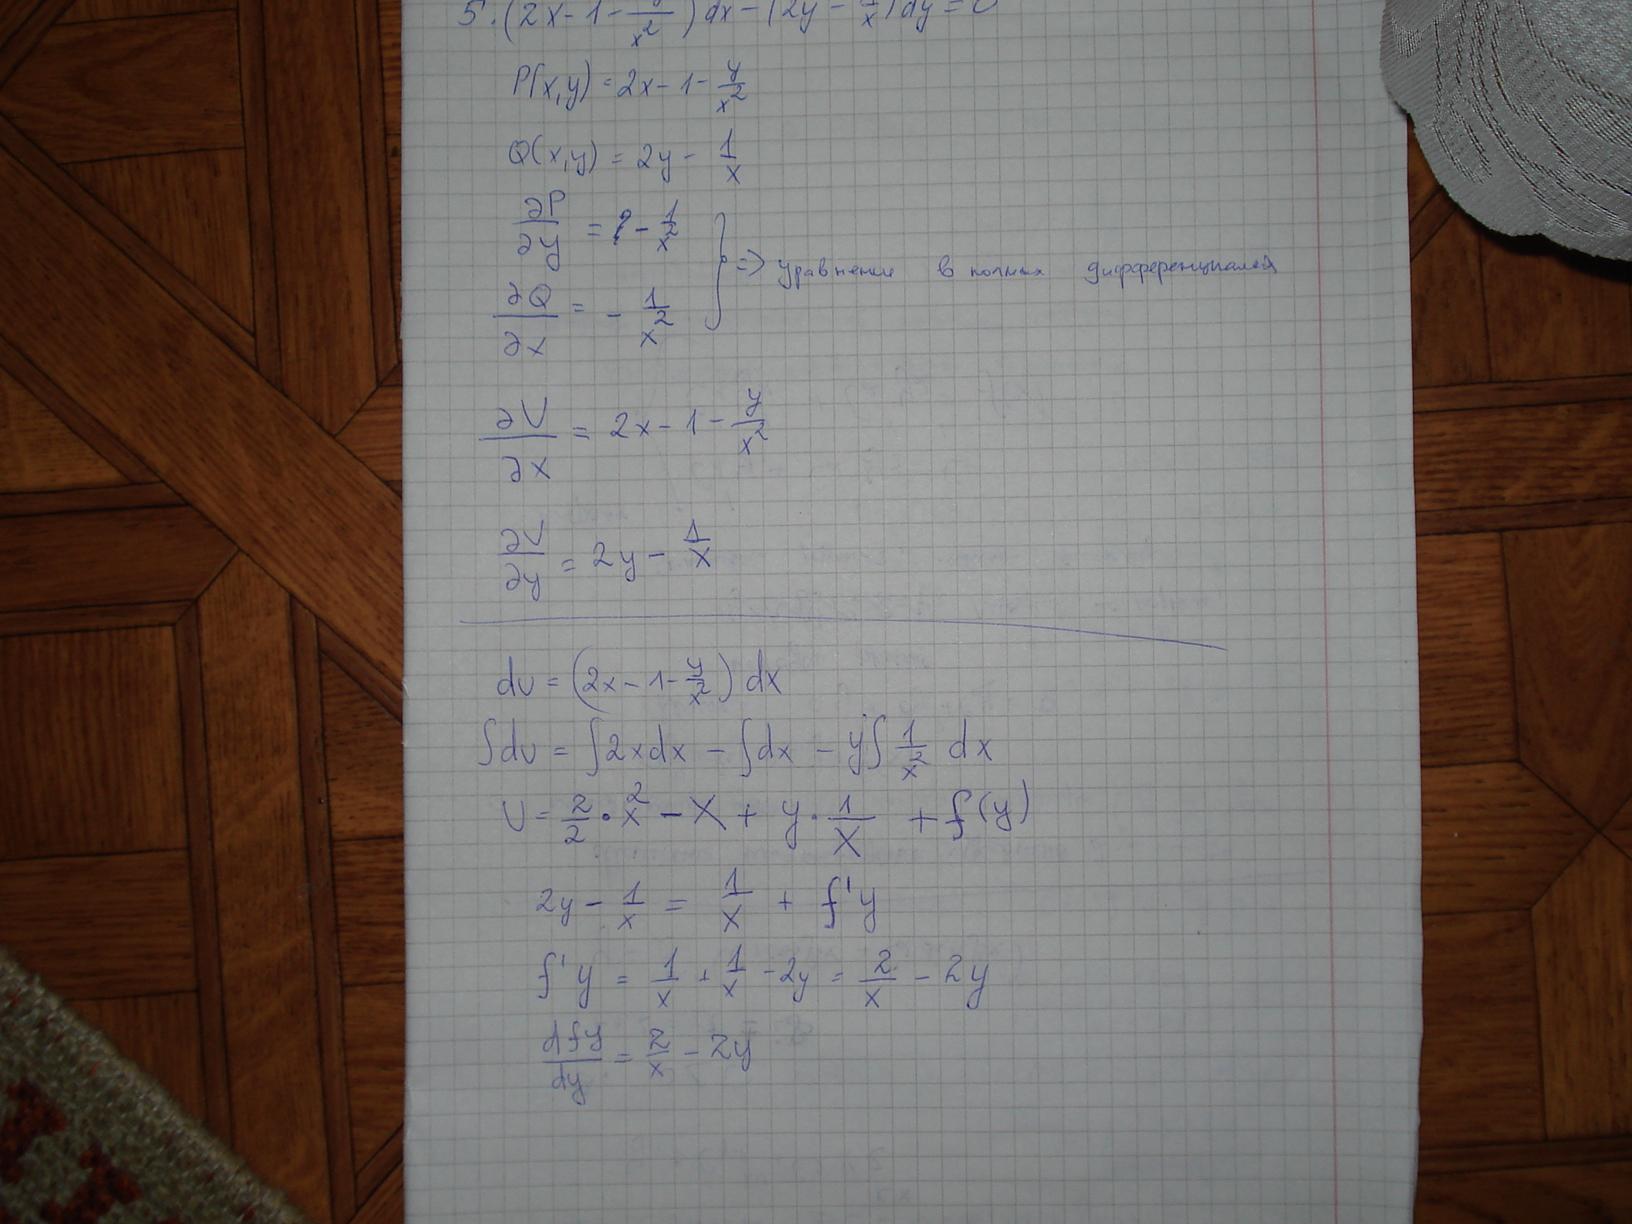 5. (2x-1-y/x²)dx-(2y-1/x)dy=0
P(x,y)=2x-1-y/x²
Q(x,y)=2y-1/x
∂P/∂y = -1/x²
∂Q/∂x = -1/x²
=> уравнение в полных дифференциалах
∂U/∂x = 2x-1-y/x²
∂U/∂y = 2y-1/x
du=(2x-1-y/x²)dx
∫du=∫2xdx-∫dx-y∫1/x² dx
U=2/2·x²-x+y·1/x+f(y)
2y-1/x=1/x+f'y
f'y=1/x+1/x-2y=2/x-2y
dfy/dy=2/x-2y